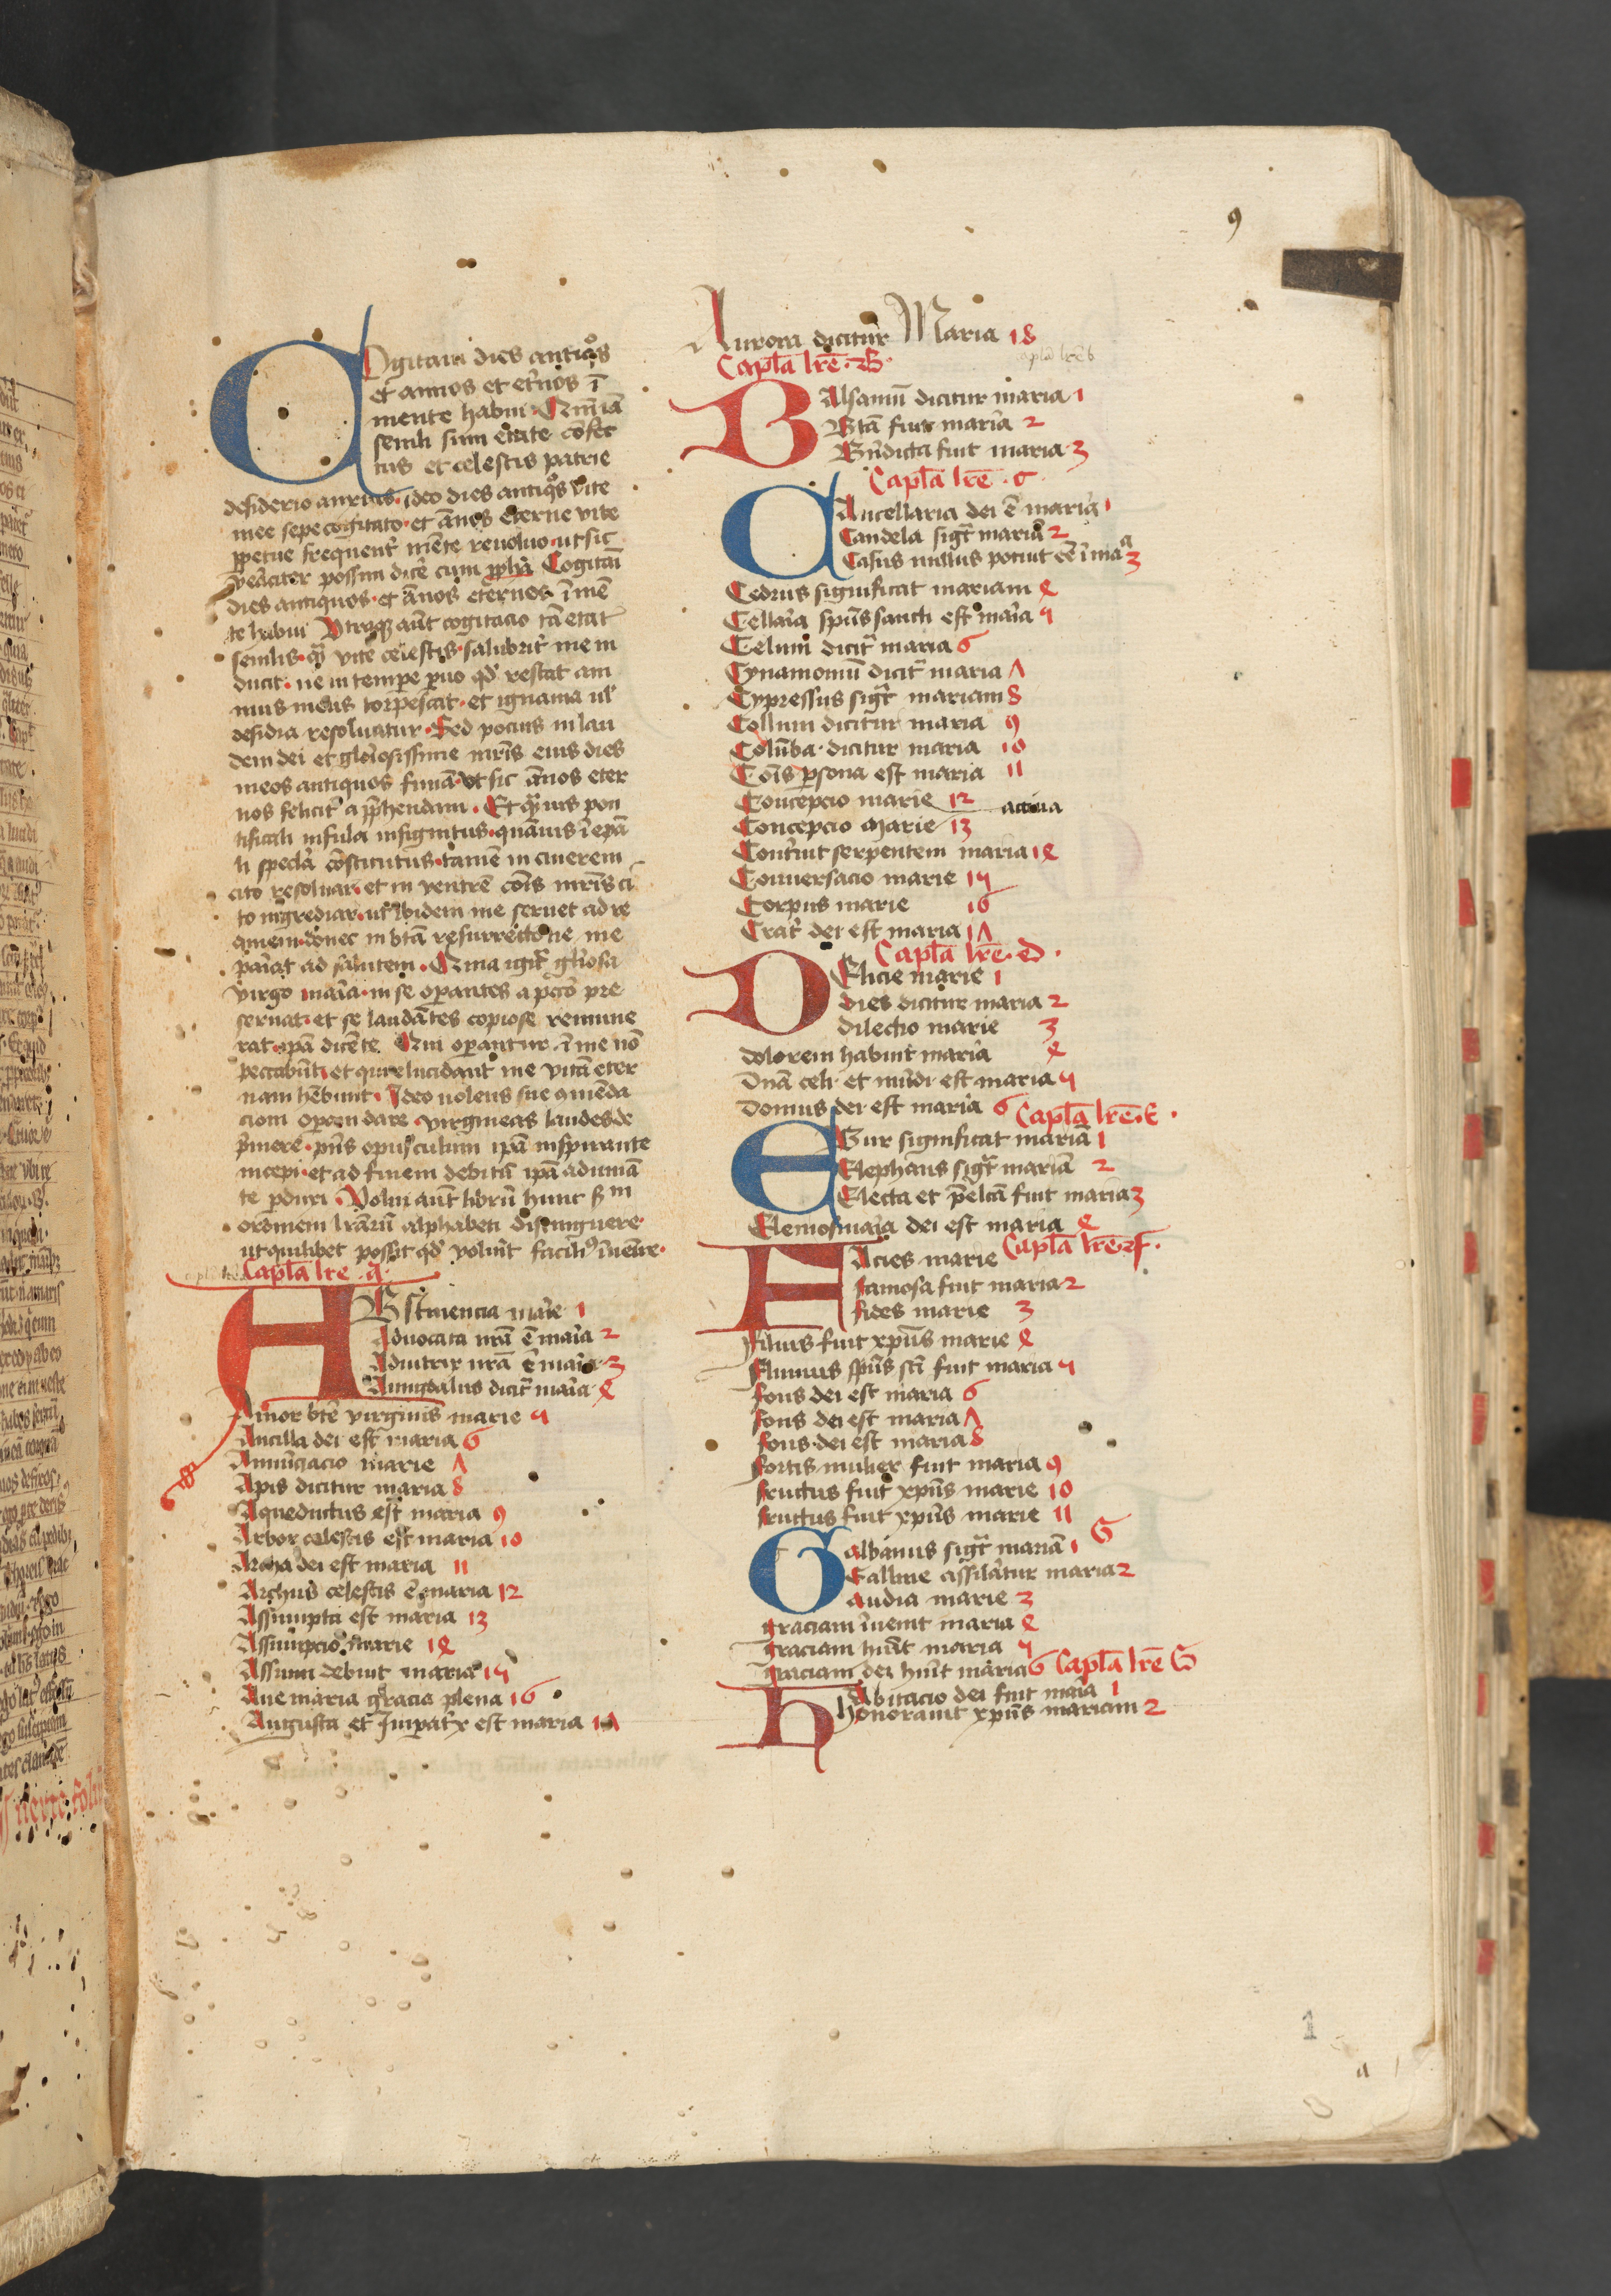 Cogitaui dies antiqͦs
et annos et et̾nos ī
mente habui Qm̄ iā
senili sum etate cōfec
tus et celestis patrie
desiderio anxius ideo dies antiqͦs vite
mee sepe cogitato et ān̄os eterne vite
ꝑpetue frequent̾ mēte reuoluo ut sic
veraciter possim dicē cum ꝓph̄a Cogitaui
dies antiquos et ān̄os eternos ī mē
te habui Vtraqꝫ aūt cogitacio tā etat̾
senilis qͣ̄ vite celestis salubrit̾ me in
ducit ne in tempe ꝑuo qd̾ restat ani
mus meus torpescat et ignauia ul̾
desidia resoluatur Sed pocius in lau
dem dei et gloriosissime mr̄is eius dies
meos antiquos finiā ut sic ān̄os eter
nos felicit̾ apphendam Et qͣ̄uis pon
tificali infula insignitus quāuis ī ep̄a
li specl̾a cōstitutus tamē in cinerem
cito resoluar et in ventrē cōis mr̄is ci
to ingrediar ut ibidem me seruet ad re
quiem donec in btā resurrectione me
pariat ad salutem Quia igit̾ gl̾iosa
virgo maria in se oꝑantes a pctō pre
seruat et se laudātes copiose remune
rat ip̄a dicēte Qui oꝑantur ī me nō
peccabūt et qui elucidant me vitā eter
nam hēbunt Ideo uolens sue cōmēda
cioni oꝑam dare virgineas laudes de
ꝓmere pn̄s opusculum ip̄a inspirante
incepi et ad finem debitū ip̄a adiuuā
te ꝑduxi Volui aūt librū hunc sm̄
ordinem lrārū alphabeti distinguere
ut quilibet possit qd̾ voluit̾ faciliꝰ īuenire
Capl̄a lr̄e a
ABstinencia marie 1
Aduocata nr̄a ē maria 2
Adiutrix nr̄a ē maria 3
Amigdalus dicit̾ maria 4
Amor btē virginis marie 5
Ancilla dei est maria 6
Annūciacio marie 7
Apis dicitur maria 8
Aqueductus est maria 9
Arbor celestis est maria 10
Archa dei est maria 11
Archus celestis ē maria 12
Assumpta est maria 13
Assumpcio marie 14
Assumi debuit maria 15
Aue maria gracia plena 16
Augusta et Imperat̾x est maria 17
9
Aurora dicitur Maria 18
Capl̄a lr̄e B
capl̄a lr̄e b
BAlsamū dicitur maria 1
Btā fuit maria 2
Bn̄dicta fuit maria 3
Capl̄a lr̄e c
CAncellaria dei ē maria 1
Candela sigt̾ mariā 2
Casus nullus potuit eē ī maͣ 3
Cedrus significat mariam 4
Cellaria sp̄us sancti est maria 5
Celum dicit̾ maria 6
Cynamomū dicit̾ maria 7
Cypressus sigt̾ mariam 8
Collum dicitur maria 9
Colūba dicitur maria 10
Cōis ꝑsona est maria 11
Concepcio marie 12 actiua
Concepcio marie 13
Contriuit serpentem maria 14
Conuersacio marie 15
Corpus marie 16
Crat̾ dei est maria 17
Capl̄a lr̄e d
DElicie marie 1
dies dicitur maria 2
dilectio marie 3
dolorem habuit maria 4
Dn̄a celi et mūdi est maria 5
Domus dei est maria 6 Capl̄a lr̄e E
EBur significat mariā 1
Elephans sigt̾ mariā 2
Electa et p̄electa fuit maria 3
Elemosinaria dei est maria 4
Capl̄a lr̄e f
FAcies marie
famosa fuit maria 2
fides marie 3
Filius fuit xp̄us marie 4
Fluuius sp̄us sc̄i fuit maria 5
fons dei est maria 6
fons dei est maria 7
fons dei est maria 8
fortis mulier fuit maria 9
fructus fuit xp̄us marie 10
fructus fuit xp̄us marie 11
G
Galbanus sigt̾ mariā 1
Galline assīlatur maria 2
Gaudia marie 3
graciam īuenit maria 4
graciam hūit maria 5
graciam dei hūit maria 6 Capl̄a lr̄e G
hAbitacio dei fuit maria 1
honorauit xp̄us mariam 2
1
a